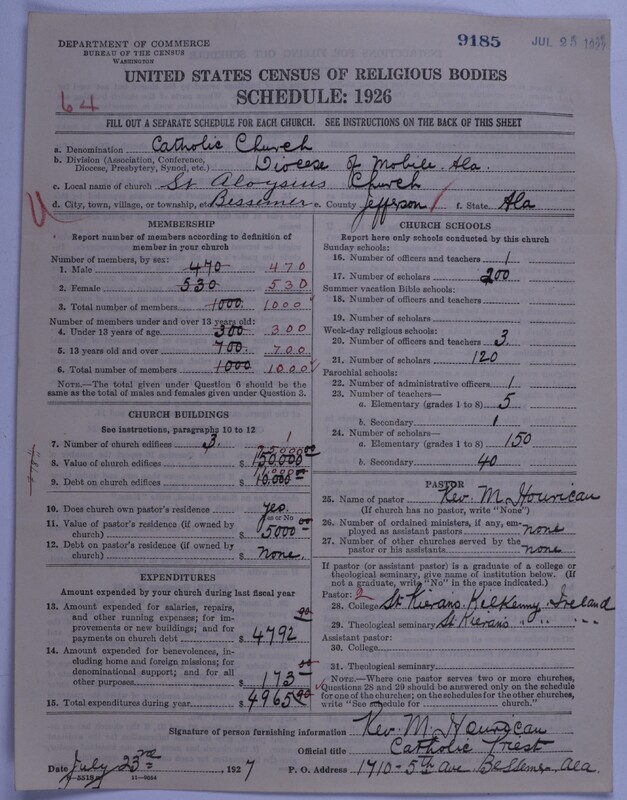 DEPARTMENT OF COMMERCE
BUREAU OF THE CENSUS
WASHINGTON
9185 JUL 25
UNITED STATES CENSUS OF RELIGIOUS BODIES
64
SCHEDULE: 1926
FILL OUT A SEPARATE SCHEDULE FOR EACH CHURCH. SEE INSTRUCTIONS ON THE BACK OF THIS SHEET
a. Denomination Catholic Church
b. Division (Association, Conference, Diocese, Presbytery, Synod, etc.) Diocese of Mobile Ala.
c. Local name of church St Aloysius Church
d. City, town, village, or township, etc. Bessemer e. County Jefferson f. State Ala
U
MEMBERSHIP
Report number of members according to definition of
member in your church
Number of members, by sex:
1. Male 470 470
2. Female 530 530
3. Total number of members 1000 1000
Number of members under and over 13 years old:
4. Under 13 years of age 300 300
5. 13 years old and over 700. 700
6. Total number of members 1000 1000
NOTE.—The total given under Question 6 should be
the same as the total of males and females given under Question 3.
CHURCH BUILDINGS
See instructions, paragraphs 10 to 12
7. Number of church edifices 3. 1
8. Value of church edifices $ 150.000 00
9. Debt on church edifices $ 10.000 00
10. Does church own pastor's residence yes.
Yes or No
11. Value of pastor's residence (if owned by
church) $ 5000 00
12. Debt on pastor's residence (if owned by
church) $ none.
EXPENDITURES
Amount expended by your church during last fiscal year
13. Amount expended for salaries, repairs,
and other running expenses; for im-
provements or new buildings; and for
payments on church debt $ 4792 00
14. Amount expended for benevolences, in-
cluding home and foreign missions; for
denominational support; and for all
other purposes $ 173 00
15. Total expenditures during year $ 4965 00
CHURCH SCHOOLS
Report here only schools conducted by this church
Sunday schools:
16. Number of officers and teachers 1
17. Number of scholars 200
Summer vacation Bible schools:
18. Number of officers and teachers
19. Number of scholars
Week-day religious schools:
20. Number of officers and teachers 3.
21. Number of scholars 120
Parochial schools:
22. Number of administrative officers 1
23. Number of teachers—
a. Elementary (grades 1 to 8) 5
b. Secondary 1
24. Number of scholars—
a. Elementary (grades 1 to 8) 150
b. Secondary 40
PASTOR
25. Name of pastor Rev. M. Hourican
(If church has no pastor, write "None")
26. Number of ordained ministers, if any, em-
ployed as assistant pastors none
27. Number of other churches served by the
pastor or his assistants none
If pastor (or assistant pastor) is a graduate of a college or
theological seminary, give name of institution below. (If
not a graduate, write "No" in the space indicated.)
Pastor: 2
28. College St Kierans Kilkenny Ireland
29. Theological seminary St Kierans " "
Assistant pastor:
30. College
31. Theological seminary
NOTE.—Where one pastor serves two or more churches,
Questions 28 and 29 should be answered only on the schedule
for one of the churches; on the schedules for the other churches,
write "See schedule for church."
Signature of person furnishing information Rev. M. Hourican
Official title Catholic Priest
Date July 23rd, 1927 P. O. Address 1710-5th Ave. Bessemer Ala.
5518 11—9554